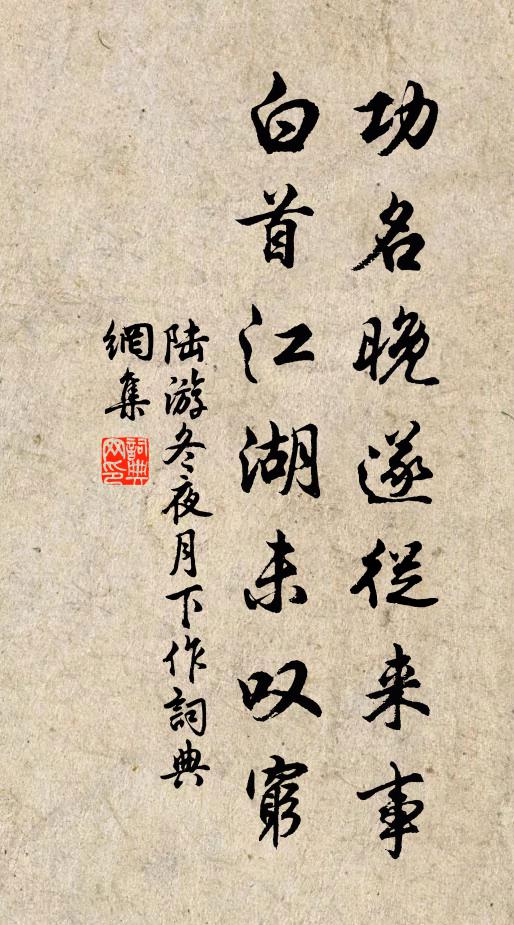 功名晚遂從来事
白首江湖未叹窮
陆游冬夜月下作詞典
網集
詞典
网印